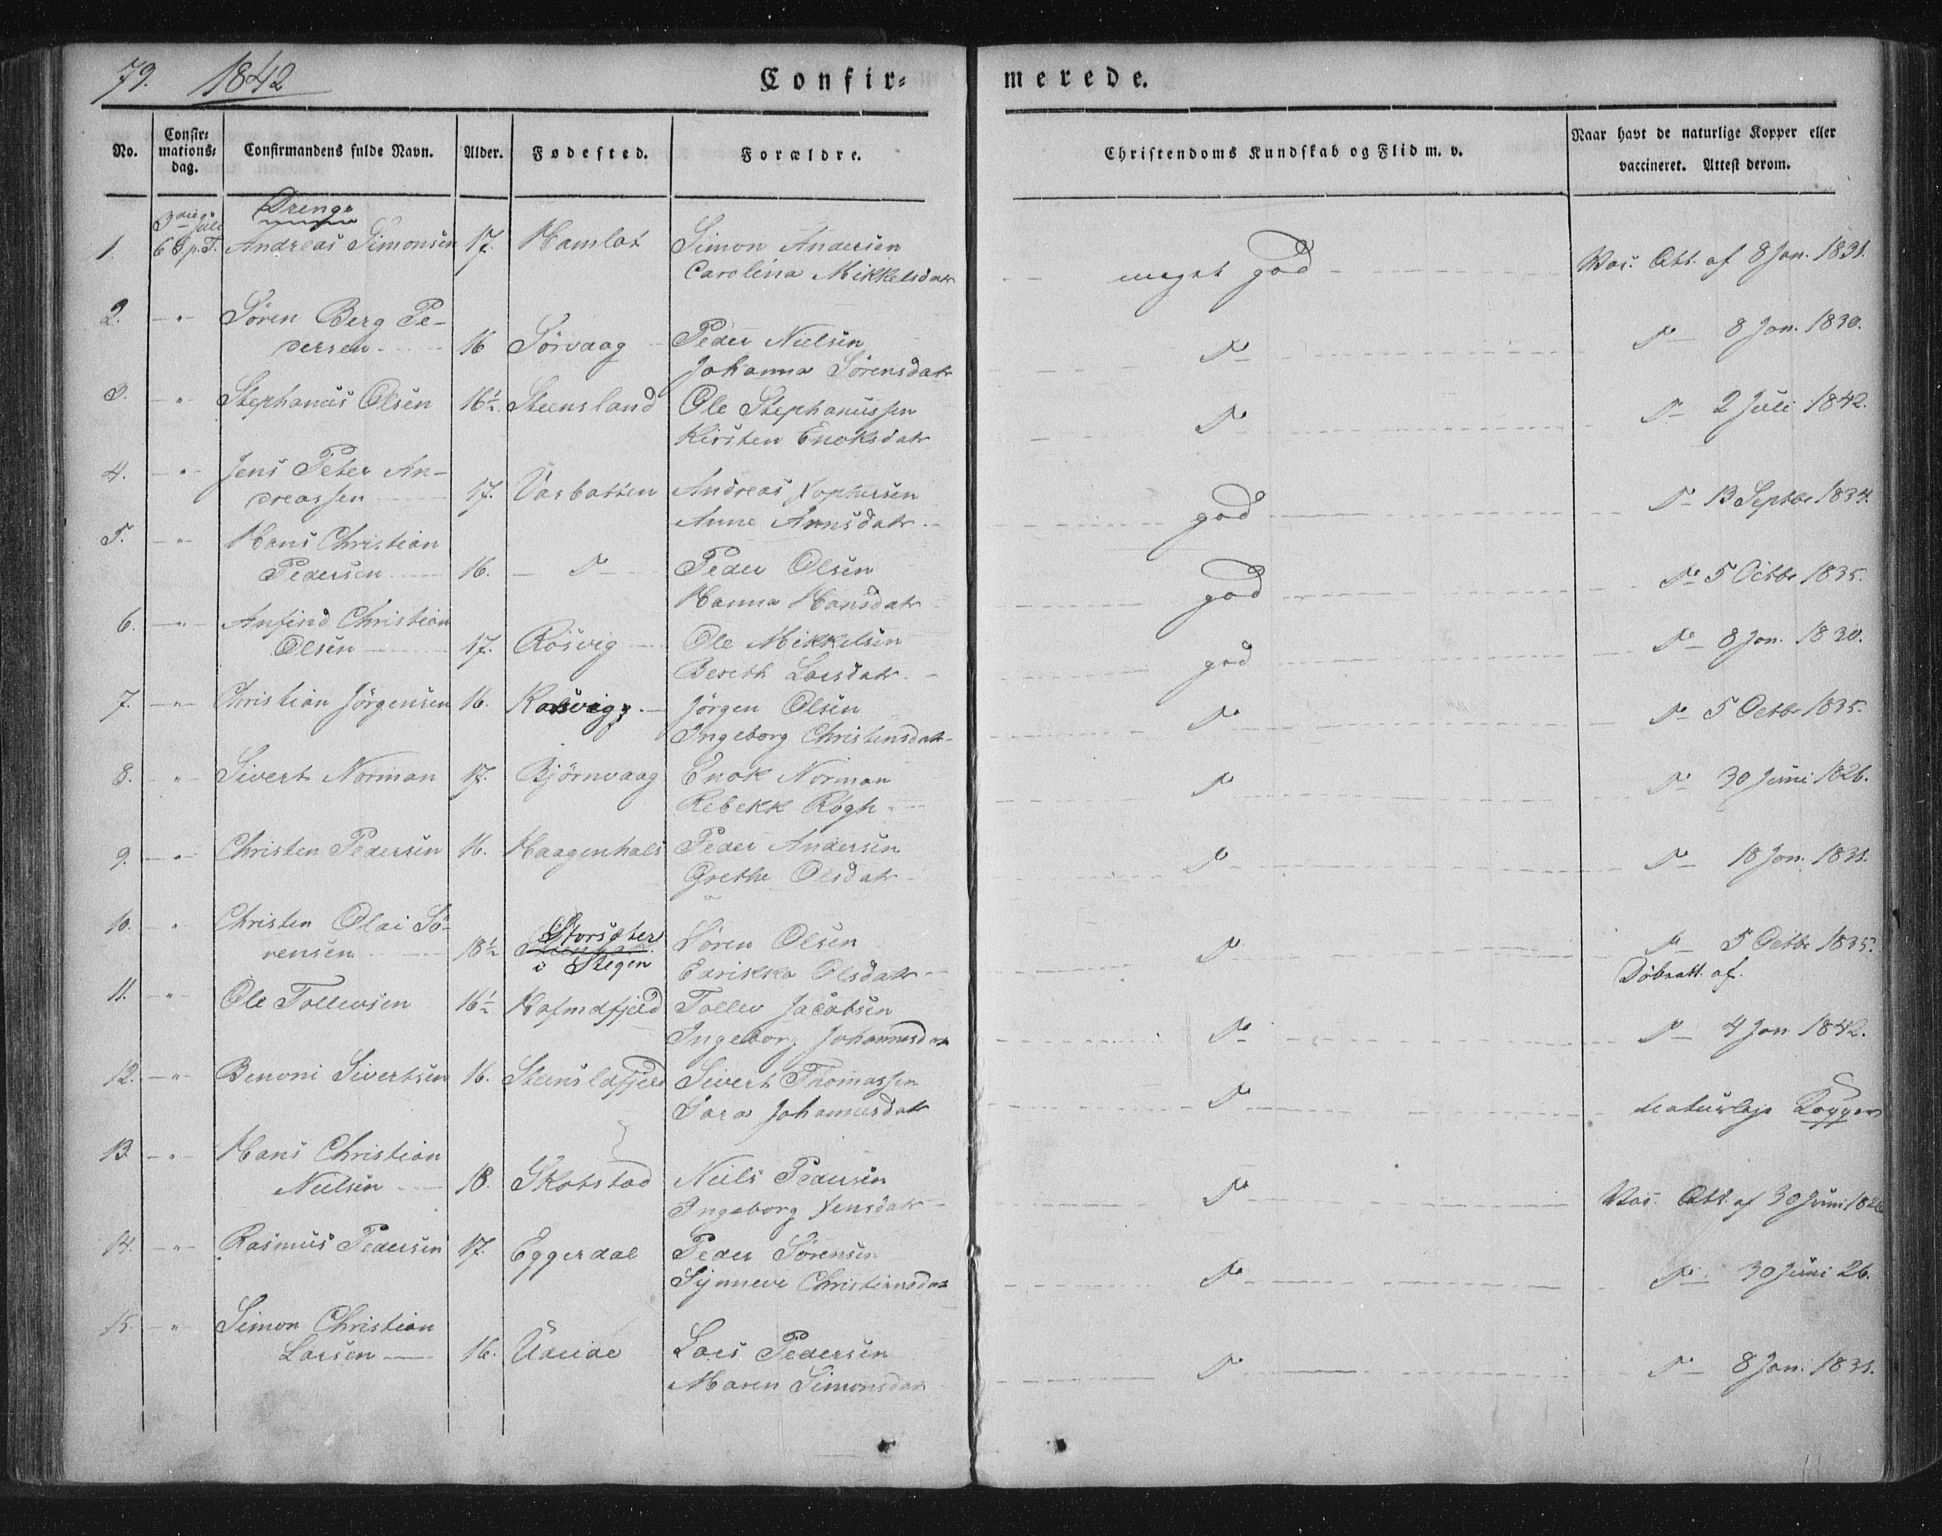 79. 1842
Confir= merede.
No. Confir= mations= dag. Confirmandens fulde Navn. Alder. Fødested. Forældre. Christendoms Kundskab og Flid m. v. Naar havt de naturlige Kopper eller vaccineret. Attest derom.
Drenge
1. 3die Juli 6 S. p. T. Andreas Simonsen 17. Hamlot Simon Andersen meget god Vac. Att. af 8 Jan. 1831.
Carolina Mikkelsdatr
2. - " - Søren Berg Pe-
dersen 16 Sørvaag Peder Nielsen D° D° 8 Jan. 1830.
Johanna Sørensdatr
3. " Stephanus Olsen 16½ Steensland Ole Stephanussen D° D° 2 Juli 1842.
Kirsten Enoksdatr
4. - " - Jens Peter An-
dreassen 17. Vasbotten Andreas god D° 13 Septbr 1834.
Anne
5. - " - Hans Christian
Pedersen 16. D° Peder Olsen god D° 5 Octbr 1835.
Hanna Hansdatr
6. - " - Anfind Christian
Olsen 17. Røsvig Ole Mikkelsen god D° 8 Jan. 1830.
Bereth Larsdatr
7. - " - Christian Jörgensen 16. Jörgen Olsen D° D° 5 Octbr 1835.
Ingeborg Christensdatr
8. " Sivert Norman 17. Bjørnvaag Enok Norman D° D° 30 Juni 1826.
Rebekk Røgh
9. - " - Christen Pedersen 16. Haagenhals Peder Andersen D° D° 18 Jan. 1831.
Grethe Olsdatr
10. " Christen Olai Sö-
rensen 18½ Storsæter i Stegen Søren Olsen D° D° 5 Octbr 1835.
Olsdatr Døbeatt. af.
11. - " - Ole Tollevsen 16½ Tollev Jacobsen D° D° 4 Jan 1842.
Ingeborg Johannesdatr
12. - " - Benoni Sivertsen 16. Steensldfjeld Sivert Thomassen D° naturlige Kopper
Sara Johannesdatr
13. - " - Hans Christian
Nielsen 18. Skotstad Niels Pedersen D° Vac. Att. af 30 Juni 1826
Ingeborg Jensdatr
14. - " - Rasmus Pedersen 17. Eggerdal Peder Sørensen D° D° 30 Juni 26.
Synneve Christiansdatr
15. - " Simon Christian
Larsen 16. Lars Pedersen D° D° 8 Jan. 1831.
Maren Simonsdatr